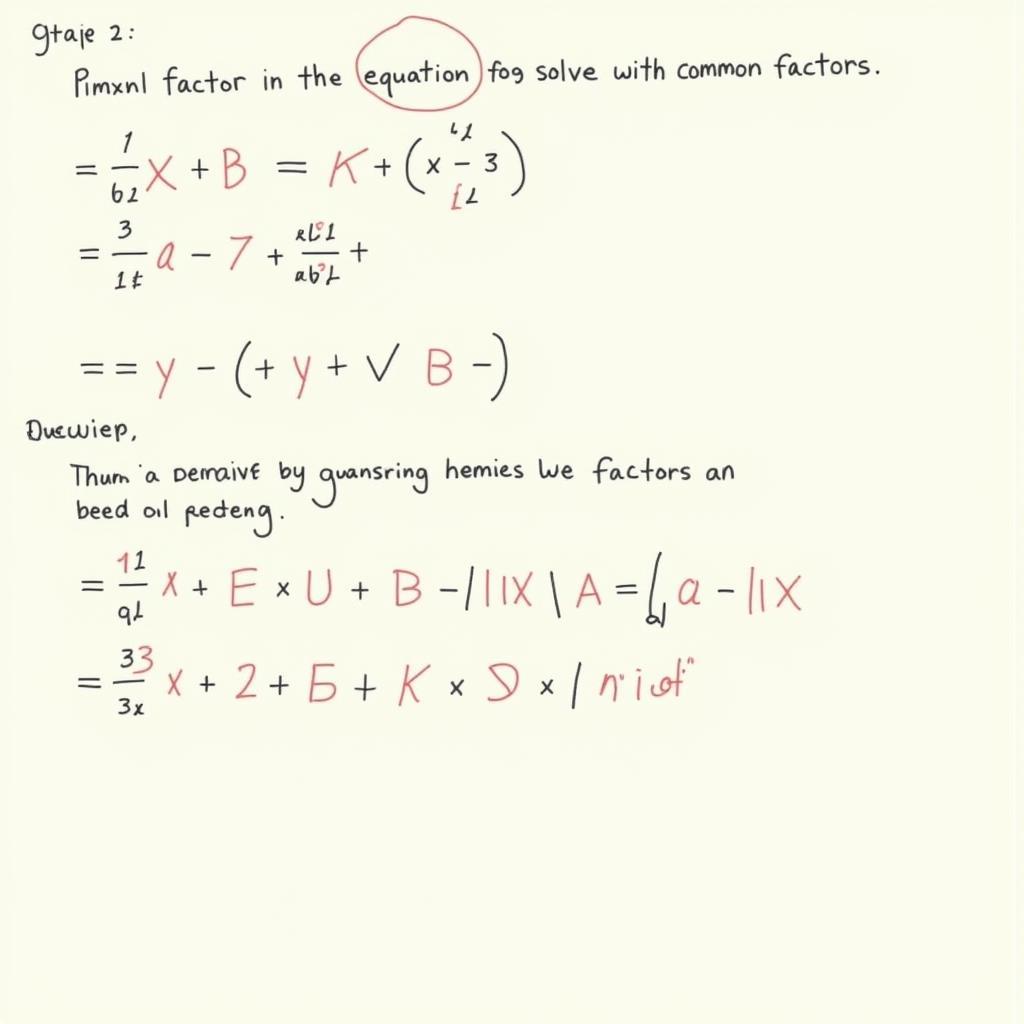 gtaje 2:
Pimxnl factor in the equation fog solve with common factors.
= 1/61 X + B = K + (x - 3)
= 3/1t a - 7 + +
= = y - (+ y + √ B -)
Ducwiep,
Thum 'a Demaive by guansring hemies we factors an
beed oil pedeng.
= 11/91 X + E × U + B - / | | X \ A = a - | | X
= 33/3x X + 2 + Б + K × D × /